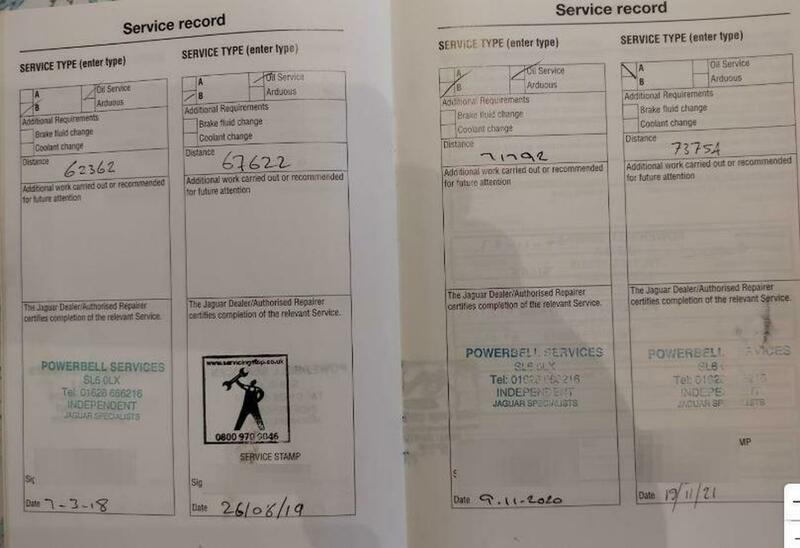 Service record
SERVICE TYPE (enter type)
A
B
Oil Service
Arduous
Additional Requirements
Brake fluid change
Coolant change
Distance
62362
Additional work carried out or recommended
for future attention
The Jaguar Dealer/Authorised Repairer
certifies completion of the relevant Service.
POWERBELL SERVICES
SL6 0LX
Tel: 01628 666216
INDEPENDENT
JAGUAR SPECIALISTS
Sig
Date 7-3-18
SERVICE TYPE (enter type)
A
B
Oil Service
Arduous
Additional Requirements
Brake fluid change
Coolant change
Distance
67622
Additional work carried out or recommended
for future attention
The Jaguar Dealer/Authorised Repairer
certifies completion of the relevant Service.
www.servicingstop.co.uk
0800 970 9046
SERVICE STAMP
Sig
Date 26/08/19
Service record
SERVICE TYPE (enter type)
A
B
Oil Service
Arduous
Additional Requirements
Brake fluid change
Coolant change
Distance
71792
Additional work carried out or recommended
for future attention
The Jaguar Dealer/Authorised Repairer
certifies completion of the relevant Service.
POWERBELL SERVICES
SL6 0LX
Tel: 01628 666216
INDEPENDENT
JAGUAR SPECIALISTS
S
Date 9.11.2020
SERVICE TYPE (enter type)
A
B
Oil Service
Arduous
Additional Requirements
Brake fluid change
Coolant change
Distance
73754
Additional work carried out or recommended
for future attention
The Jaguar Dealer/Authorised Repairer
certifies completion of the relevant Service.
POWERBELL
SL6
Tel:
JAGUAR SPECIALISTS
MP
Date 19/11/21